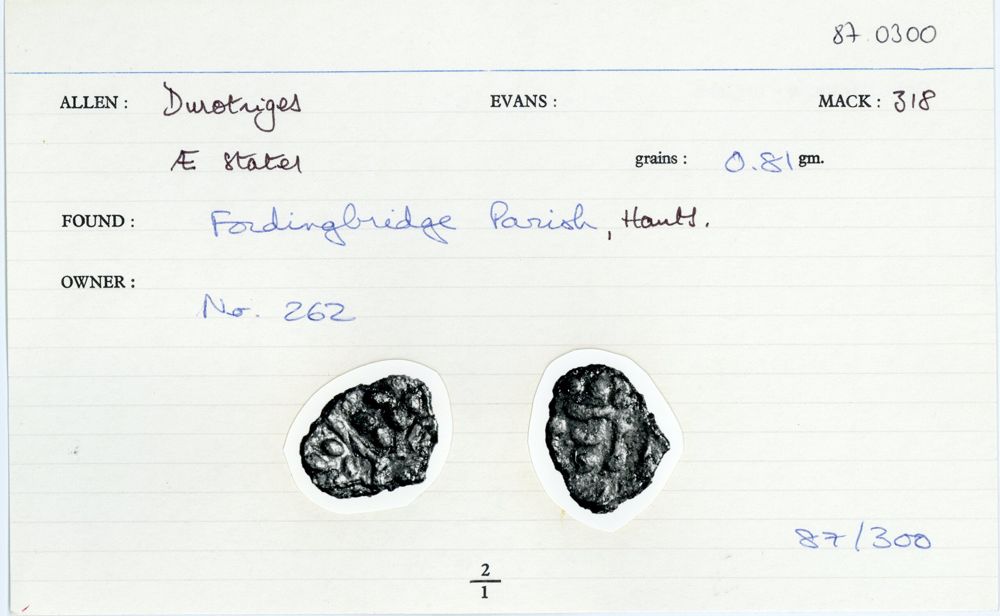 87.0300
ALLEN : Durotriges EVANS : MACK : 318
Æ Stater grains : 0.81 gm.
FOUND : Fordingbridge Parish, Hants.
OWNER :
No. 262
87/300
2
1